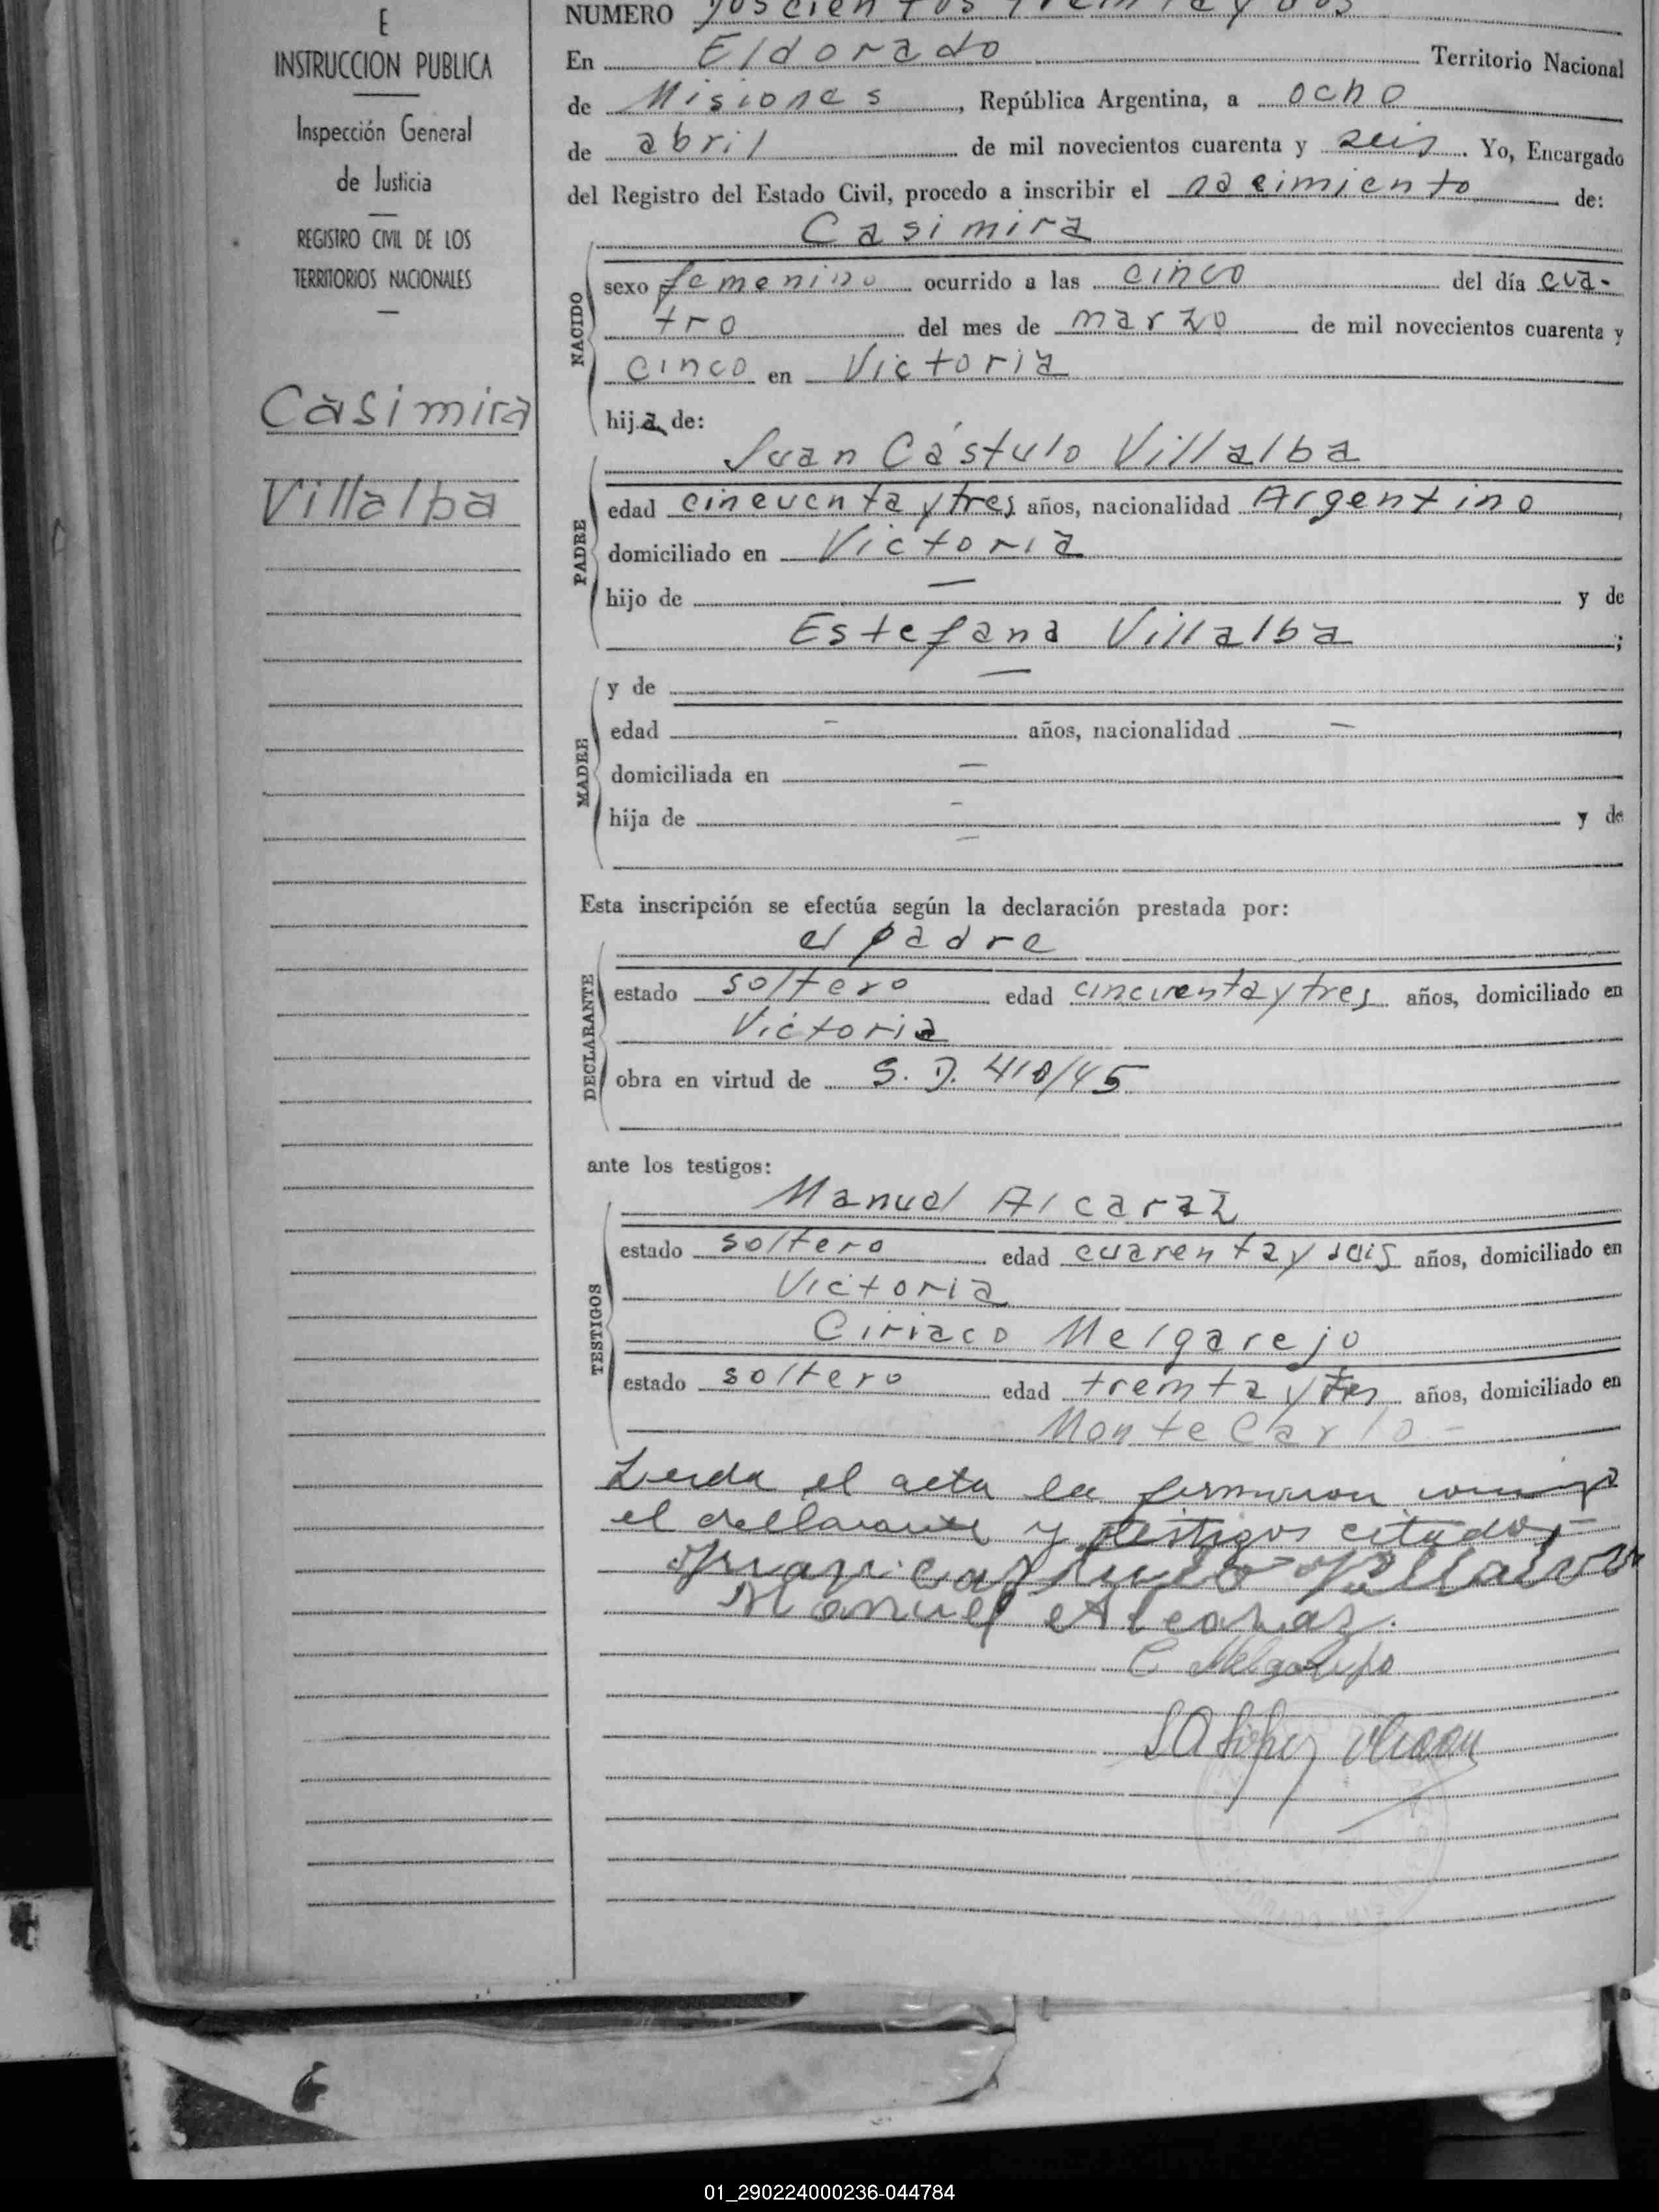 E
INSTRUCCION PUBLICA
Inspección General
de Justicia
REGISTRO CIVIL DE LOS
TERRITORIOS NACIONALES
Casimira
Villalba
NUMERO Doscientos treinta y dos
En Eldorado Territorio Nacional
de Misiones, República Argentina, a ocho
de abril de mil novecientos cuarenta y seis. Yo, Encargado
del Registro del Estado Civil, procedo a inscribir el nacimiento de:
NACIDO
Casimira
sexo femenino ocurrido a las cinco del día cua-
tro del mes de marzo de mil novecientos cuarenta y
cinco en Victoria
hija de:
PADRE
Juan Cástulo Villalba
edad cincuenta y tres años, nacionalidad Argentino,
domiciliado en Victoria
hijo de — y de
Estefana Villalba;
MADRE
y de —
edad — años, nacionalidad —,
domiciliada en —
hija de — y de
—
Esta inscripción se efectúa según la declaración prestada por:
DECLARANTE
el padre
estado soltero edad cincuenta y tres años, domiciliado en
Victoria
obra en virtud de S. D. 410/45
ante los testigos:
TESTIGOS
Manuel Alcaraz
estado soltero edad cuarenta y seis años, domiciliado en
Victoria
Ciriaco Melgarejo
estado soltero edad treinta y tres años, domiciliado en
Monte Carlo-
Leida el acta la firmaron conmigo
el declarante y testigos citados-
Juan Castulo Villalva
Manuel Alcaraz.
C Melgarejo
01_290224000236-044784